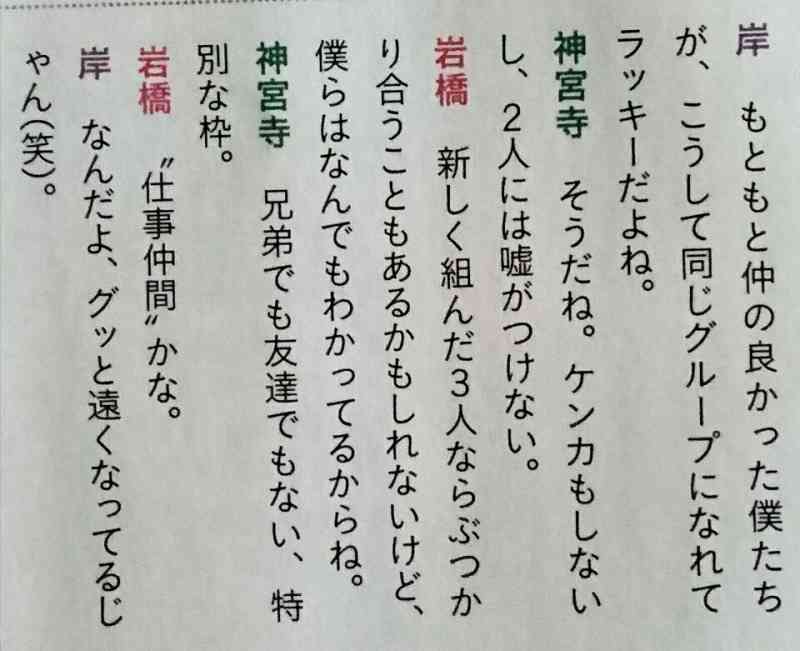 岸　もともと仲の良かった僕たち
が、こうして同じグループになれて
ラッキーだよね。
神宮寺　そうだね。ケンカもしない
し、2人には嘘がつけない。
岩橋　新しく組んだ3人ならぶつか
り合うこともあるかもしれないけど、
僕らはなんでもわかってるからね。
神宮寺　兄弟でも友達でもない、特
別な枠。
岩橋　〝仕事仲間〟かな。
岸　なんだよ、グッと遠くなってるじ
ゃん(笑)。